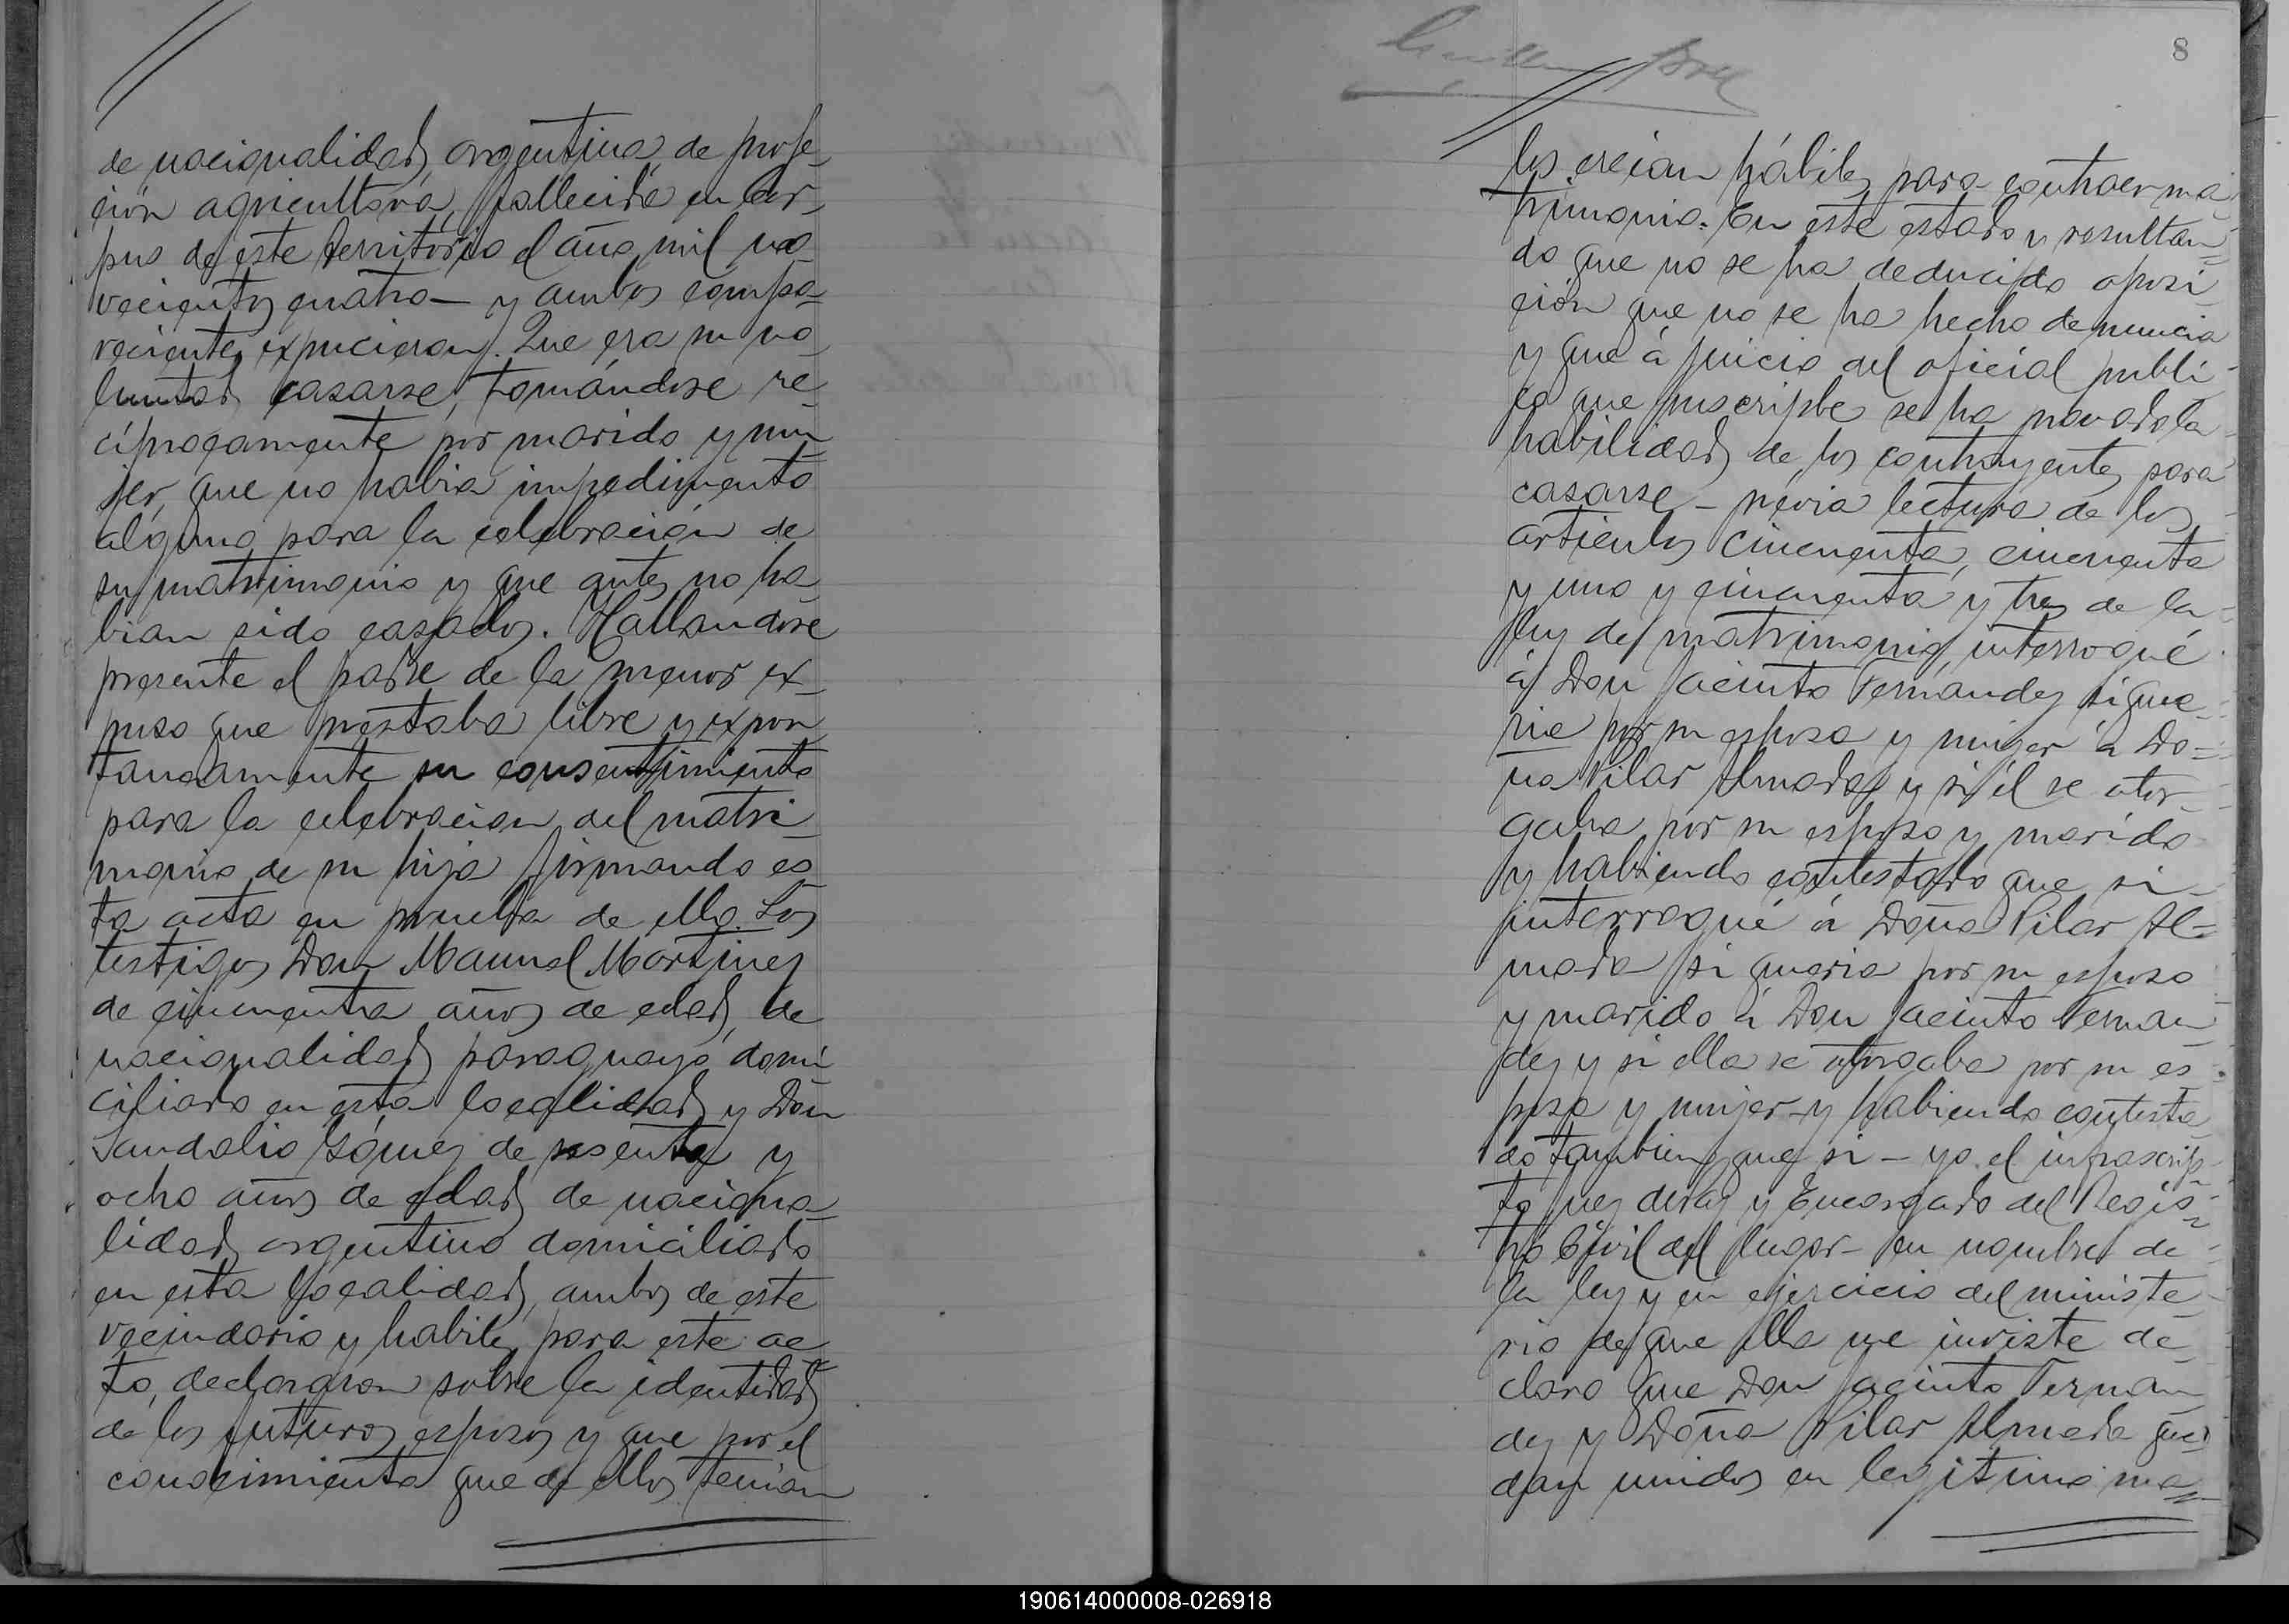 de nacionalidad argentina de profe-
ción agricultora, fallecida en Cor-
pus de este territorio el año mil no-
vecientos cuatro — y ambos compa-
recientes expucieron. Que era su vo-
luntad casarse, tomándose re-
ciprocamente por marido y mu-
jer, que no habia impedimento
alguno para la celebración de
su matrimonio y que antes no ha-
bian sido casados. Hallandose
presente el padre de la menor ex-
puso que prestaba libre y expon-
taneamente su consentimiento
para la celebracion del matri-
monio de su hija firmando es-
ta acta en prueba de ello. Los
testigos Don Manuel Martinez
de cincuenta años de edad, de
nacionalidad paraguaya domi-
ciliado en esta localidad y Don
Sandalio Gómez de sesenta y
ocho años de edad de naciona-
lidad argentino domiciliado
en esta localidad, ambos de este
vecindario y habiles para este ac-
to, declararon sobre la identidad
de los futuros esposos y que por el
conocimiento que de ellos tenian
8
los creian hábiles para contraer ma-
trimonio. En este estado y resultan-
do que no se ha deducido oposi-
ción que no se ha hecho denuncia
y que á juicio del oficial publi-
co que suscripbe se ha provado la
habilidad de los contrayentes para
casarse — prévia lectura de los
articulos cincuenta, cincuenta
y uno y cincuenta y tres de la
ley de matrimonio, interrogué
á Don Jacinto Fernandez si que-
ria por su esposa y mujer á Do-
ña Pilar Almada y si él se otor-
gaba por su esposo y marido
y habiendo contestado que si —
interrogué á Doña Pilar Al-
mada si queria por su esposo
y marido á Don Jacinto Fernan-
dez y si ella se otorgaba por su es-
posa y mujer — y habiendo contesta-
do tambien que si — yo el infrascrip-
to juez de Paz y Encargado del Regis-
tro Civil del lugar — en nombre de
la ley y en ejercicio del ministe-
rio de que ella me inviste de-
claro que Don Jacinto Fernan-
dez y Doña Pilar Almada que-
dan unidos en legitimo ma-
190614000008-026918